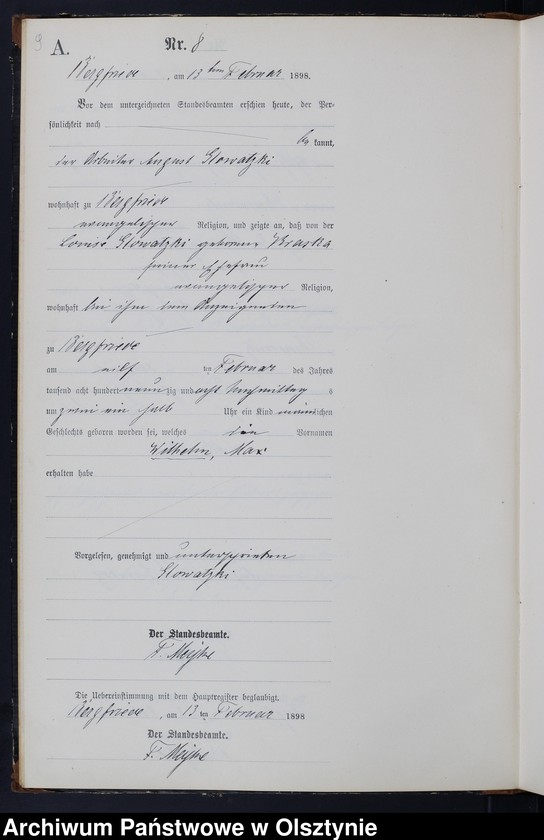 9
A.
Nr. 8
Bergfriede, am 13 ten Februar 1898.
Vor dem unterzeichneten Standesbeamten erschien heute, der Per-
sönlichkeit nach
be kannt,
der Arbeiter August Slowatzki
wohnhaft zu Bergfriede
evangelischer Religion, und zeigte an, daß von der
Louise Slowatzki geborene Kruska
seiner Ehefrau
evangelischer Religion,
wohnhaft bei ihm dem Anzeigenden
zu Bergfriede
am eilf ten Februar des Jahres
tausend acht hundert neun zig und acht Nachmittag s
um zwei ein halb Uhr ein Kind männlichen
Geschlechts geboren worden sei, welches die Vornamen
Wilhelm, Max
erhalten habe
Vorgelesen, genehmigt und unterschrieben
Slowatzki
Der Standesbeamte.
F.
Die Uebereinstimmung mit dem Hauptregister beglaubigt.
Bergfriede, am 13 ten Februar 1898
Der Standesbeamte.
F.
Archiwum Państwowe w Olsztynie